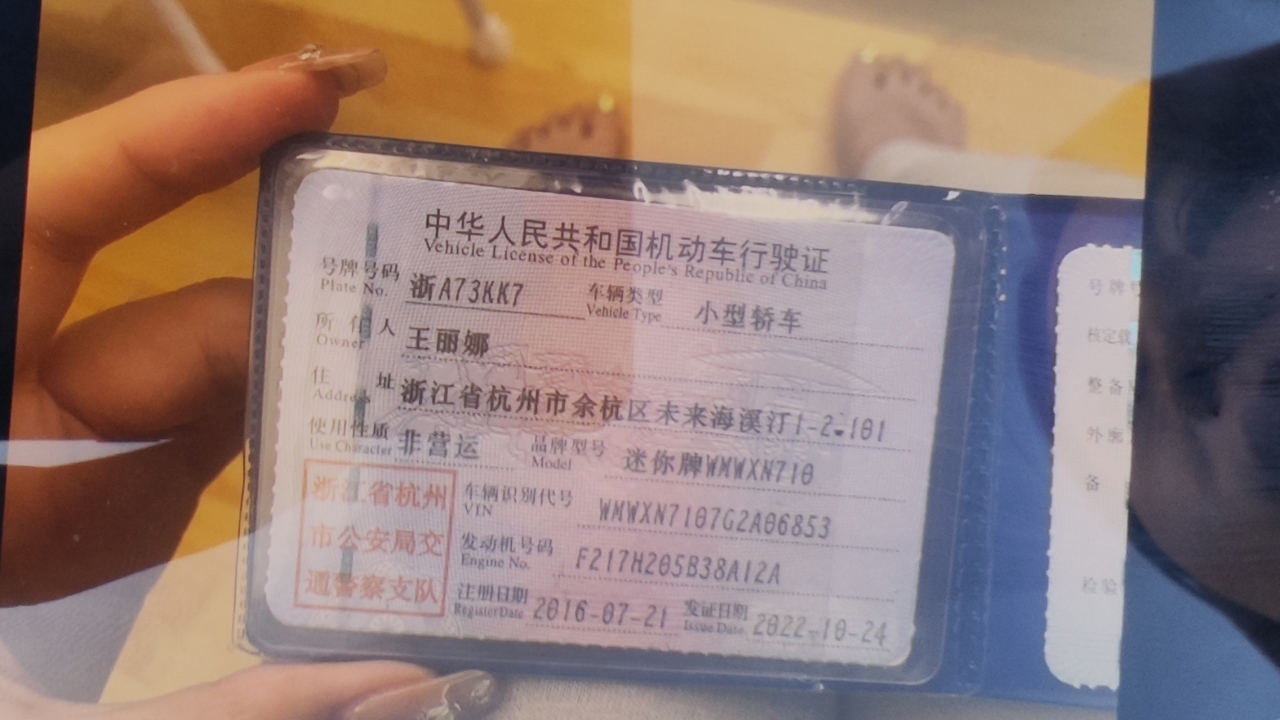 中华人民共和国机动车行驶证
Vehicle License of the People's Republic of China
号牌号码 浙A73KK7 车辆类型 小型轿车
Plate No. Vehicle Type
所有人 王丽娜
Owner
住址 浙江省杭州市余杭区未来海溪汀1-2-101
Address
使用性质 非营运 品牌型号 迷你牌WMWXN710
Use Character Model
浙江省杭州
市公安局交
通警察支队
车辆识别代号 WMWXN7107G2A06853
VIN
发动机号码 F217H205B38A12A
Engine No.
注册日期 2016-07-21 发证日期 2022-10-24
Register Date Issue Date
号牌
核定载
整备
外廓
备
检验